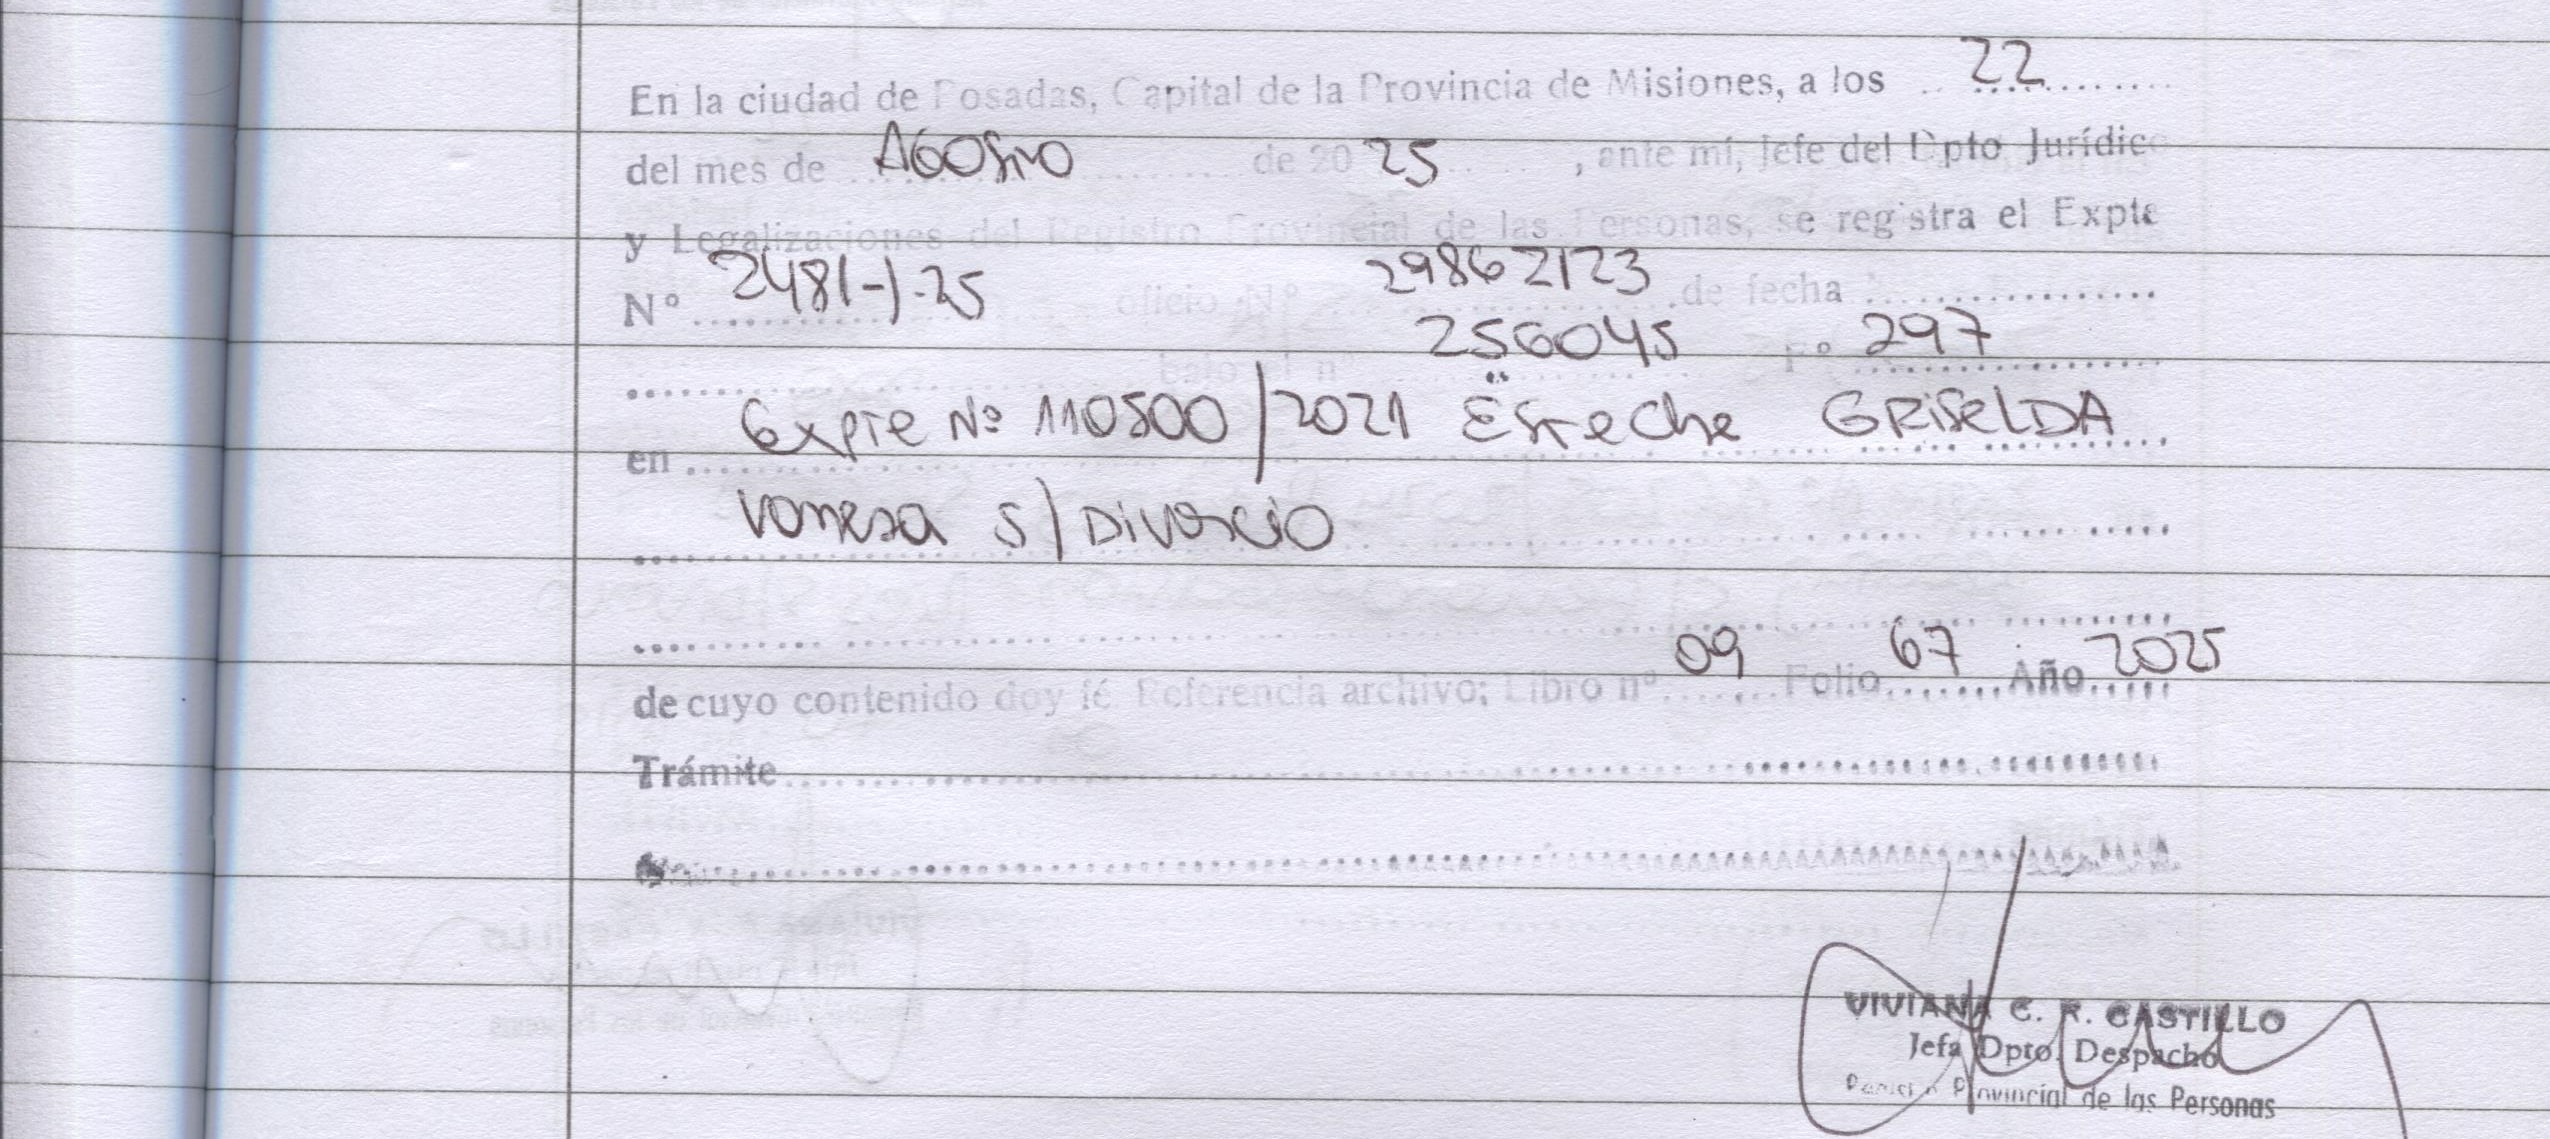 En la ciudad de Posadas, Capital de la Provincia de Misiones, a los 22
del mes de AGOSTO de 20 25, ante mí, Jefe del Dpto Jurídico
y Legalizaciones del Registro Provincial de las Personas, se registra el Expte
Nº 2481-J-25 oficio Nº 29862123 de fecha
bajo el nº 256045 Fº 297
en Expte Nº 110500/2021 "Esteche GRISELDA
Vanesa S/ DIVORCIO
de cuyo contenido doy fé Referencia archivo: Libro nº 09 Folio 67 Año 2025
Trámite
VIVIANA C. R. CASTILLO
Jefa Dpto. Despacho
Provincial de las Personas